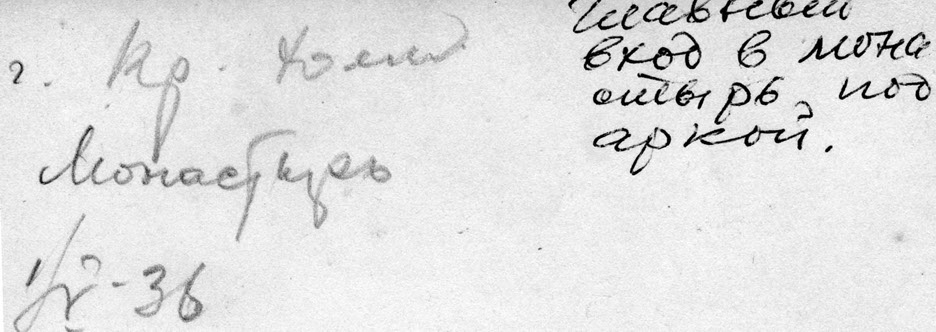 г. Кр. Холм
Монастырь
1/V-36
Главный
вход в мона
стырь под
аркой.